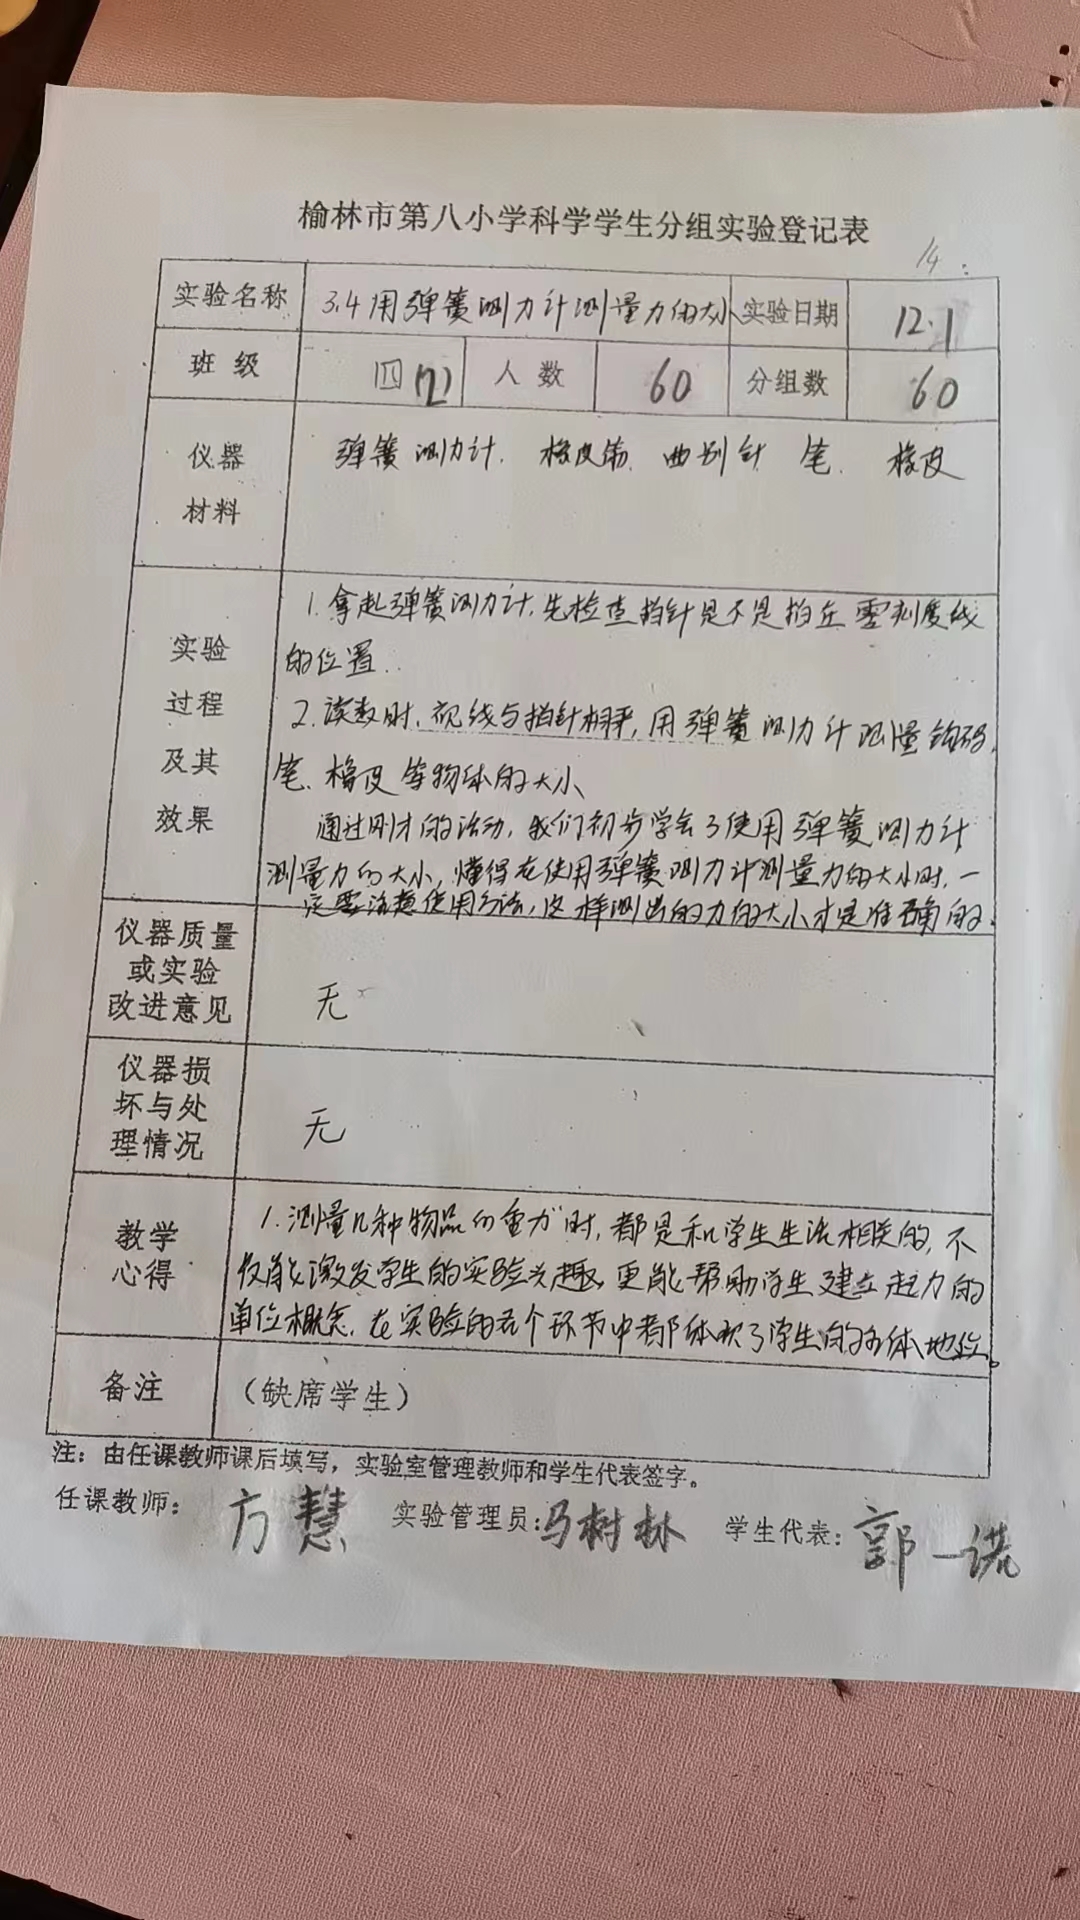 榆林市第八小学科学学生分组实验登记表
14
实验名称 3.4用弹簧测力计测量力的大小 实验日期 12.1
班级 四(2) 人数 60 分组数 60
仪器材料 弹簧测力计. 橡皮筋. 曲别针 笔. 橡皮
实验过程及其效果
1.拿起弹簧测力计,先检查指针是不是指在零刻度线
的位置.
2.读数时,视线与指针相平,用弹簧测力计测量钩码、
笔、橡皮等物体的大小
通过刚才的活动,我们初步学会了使用弹簧测力计
测量力的大小,懂得在使用弹簧测力计测量力的大小时,一
定要注意使用方法,这样测出的力的大小才是准确的.
仪器质量或实验改进意见 无
仪器损坏与处理情况 无
教学心得
1.测量几种物品的重力时,都是和学生生活相关的,不
仅能激发学生的实验兴趣,更能帮助学生建立起力的
单位概念.在实验的各个环节中都体现了学生的主体地位。
备注 (缺席学生)
注:由任课教师课后填写,实验室管理教师和学生代表签字。
任课教师: 方慧 实验管理员: 马树林 学生代表: 郭一诺